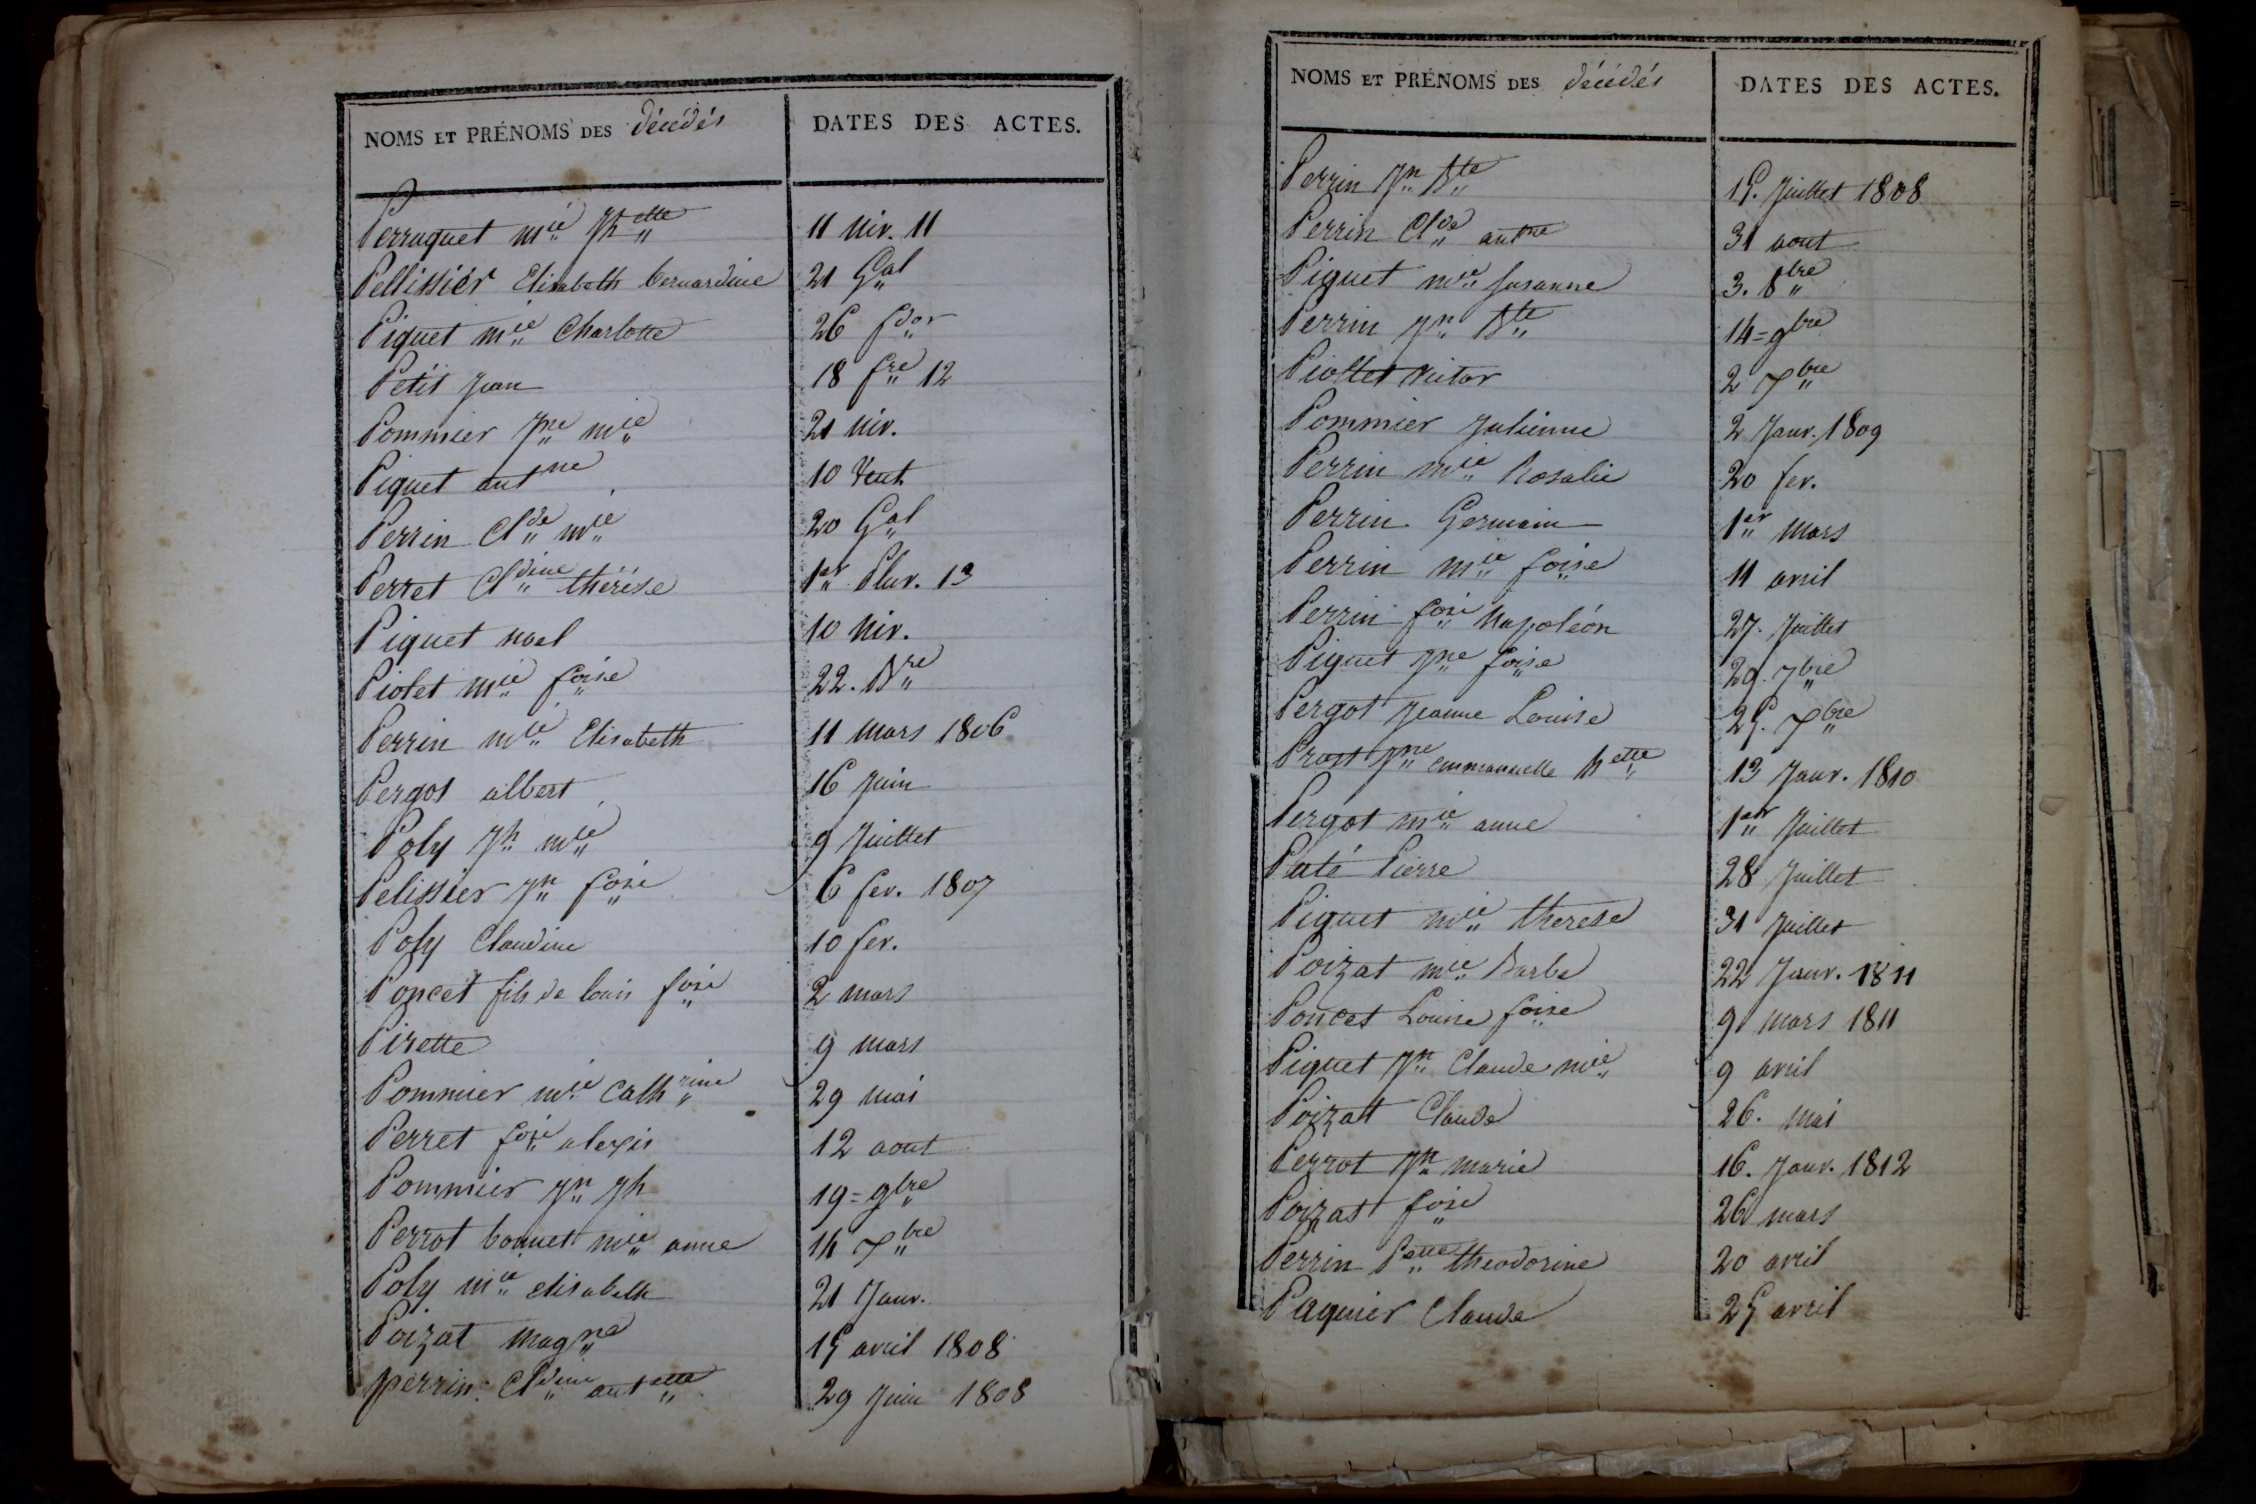 NOMS ET PRÉNOMS DES décédés DATES DES ACTES.
Perraquet mie Jhette 11 niv. 11
Pellissier Elisabeth bernardine 21 Gal
Piquet mie Charlotte 26 fdor
Petit Jean 18 fre 12
Pommier Jne mie 21 niv.
Piquet antne 10 Vent.
Perrin Clde mie 20 Gal
Perret Cldine thérèse 1er Pluv. 13
Piquet noel 10 niv.
Piolet mie foise 22. Bre
Perrin mie Elisabeth 11 mars 1806
Pergot albert 16 Juin
Poly Jh mie 9 Juillet
Pelissier Jn fois 6 fev. 1807
Poly Claudine 10 fev.
Poncet fils de louis fois 2 mars
Pirette 9 mars
Pommier mie Cathrine 29 mai
Perret fois alexis 12 aout
Pommier Jn Jh 19 = 9bre
Perrot bonnet mie anne 14 Xbre
Poly mie elisabeth 21 Janv.
Poizat magne 15 avril 1808
perrin Cldine antette 29 Juin 1808
NOMS ET PRÉNOMS DES décédés DATES DES ACTES.
Perrin Jn Bte 15. Juillet 1808
Perrin Clde antne 31 aout
Piquet mie Susanne 3. 8bre
Perrin Jn Bte 14 = 9bre
Piollet Victor 2 Xbre
Pommier Julienne 2 Janv. 1809
Perrin mie Rosalie 20 fev.
Perrin Germain 1er mars
Perrin mie foise 11 avril
Perrin fois Napoléon 27. Juillet
Piquet Jne foise 29. 7bre
Pergot Jeanne Louise 25. Xbre
Prost Jne emmanuelle hette 13 Janv. 1810
Pergot mie anne 1er Juillet
Paté Pierre 28 Juillet
Piquet mie therese 31 Juillet
Poizat mie Barbe 22 Janv. 1811
Poncet Louise foise 9 mars 1811
Piquet Jn Claude mie 9 avril
Poizat Claude 26. mai
Perrot Jn marie 16. Janv. 1812
Poizat fois 26 mars
Perrin Pette theodorine 20 avril
Paquier Claude 25 avril